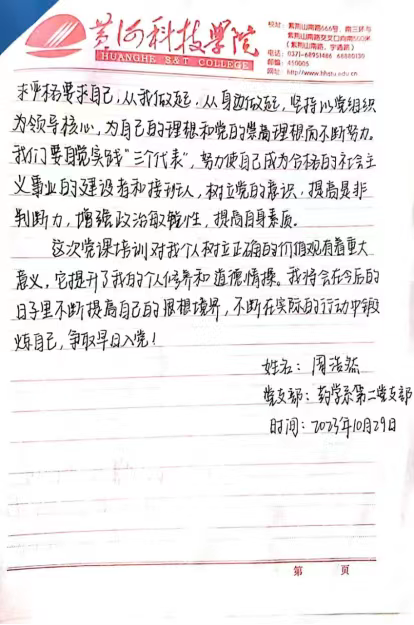 黄河科技学院
HUANGHE S&T COLLEGE
地址：紫荆山南路566号，南三环与
紫荆山南路交叉口向南500米
（紫荆山南路、宇通路）
电话：0371-68951486 68880130
邮编：450005
网址：http://www.hhstu.edu.cn
求严格要求自己，从我做起，从身边做起，坚持以党组织
为领导核心，为自己的理想和党的崇高理想而不断努力。
我们要自觉实践“三个代表”，努力使自己成为合格的社会主
义事业的建设者和接班人，树立党的意识，提高是非
判断力，增强政治敏锐性，提高自身素质。
这次党课培训对我个人树立正确的价值观有着重大
意义，它提升了我的个人修养和道德情操。我将会在今后的
日子里不断提高自己的思想境界，不断在实际的行动中锻
炼自己，争取早日入党！
姓名：周浩然
党支部：药学系第二党支部
时间：2023年10月29日
第 页